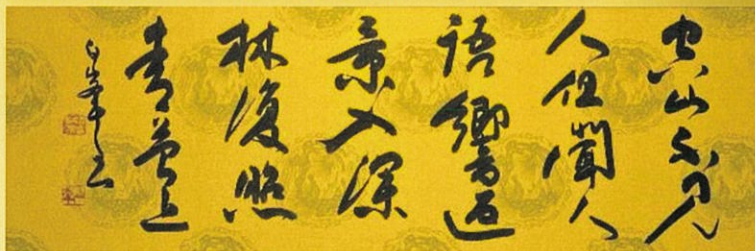 空山不見
人但聞人
語響返
景入深
林復照
青苔上